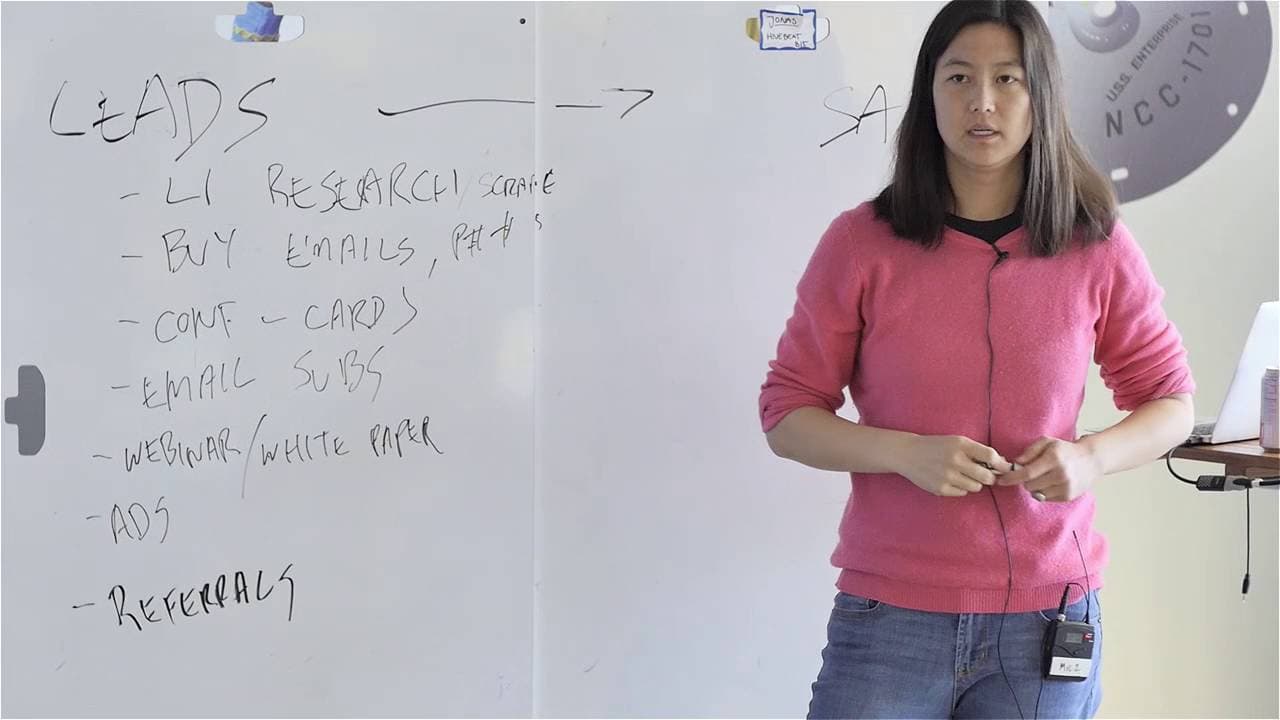 JONAS
HUEBEAT
BIZ
U.S.S. ENTERPRISE
NCC-1701
LEADS → SA
- LI RESEARCH/SCRAPE
- BUY EMAILS, P##'S
- CONF - CARDS
- EMAIL SUBS
- WEBINAR/WHITE PAPER
- ADS
- REFERRALS
MIC 2